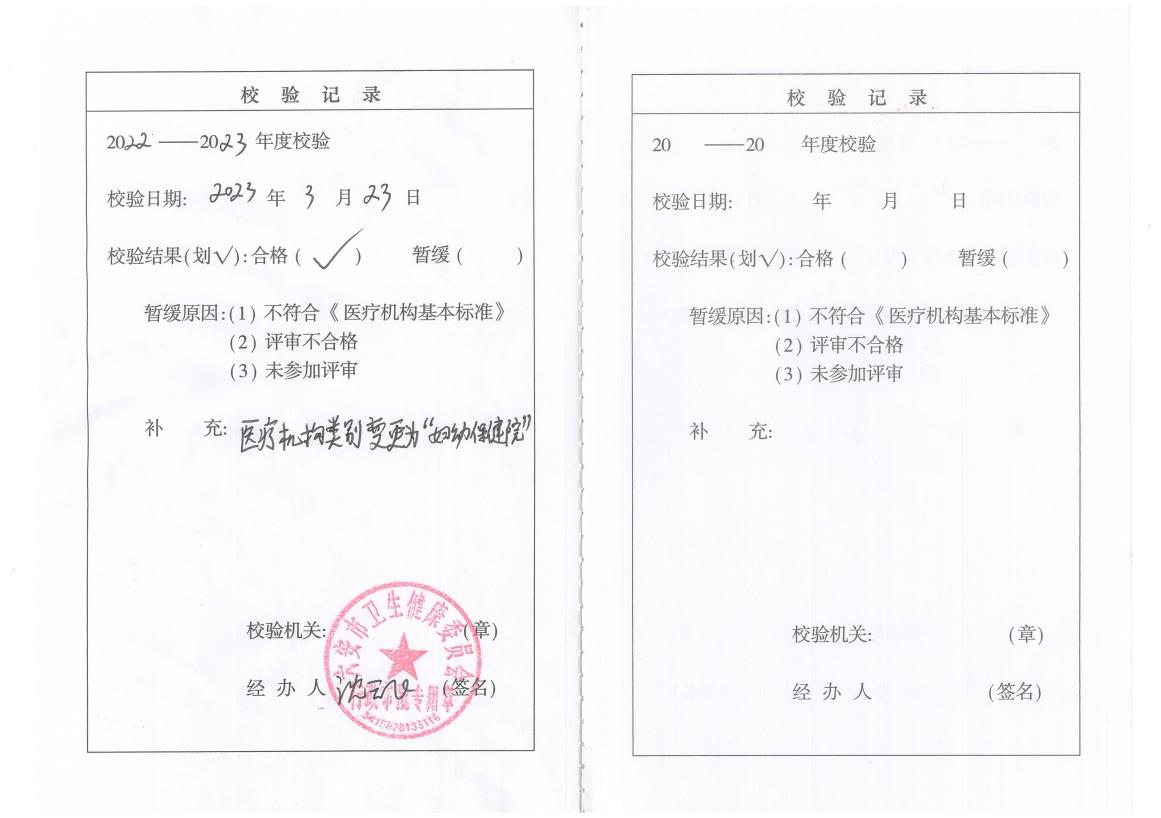 校验记录
2022——2023年度校验
校验日期: 2023年3月23日
校验结果(划√):合格(√) 暂缓( )
暂缓原因:(1) 不符合《医疗机构基本标准》
(2) 评审不合格
(3) 未参加评审
补 充: 医疗机构类别变更为“妇幼保健院”
六安市卫生健康委员会
校验机关: (章)
经办人 (签名)
行政审批专用章
校验记录
20 ——20 年度校验
校验日期: 年 月 日
校验结果(划√):合格( ) 暂缓( )
暂缓原因:(1) 不符合《医疗机构基本标准》
(2) 评审不合格
(3) 未参加评审
补 充:
校验机关: (章)
经办人 (签名)